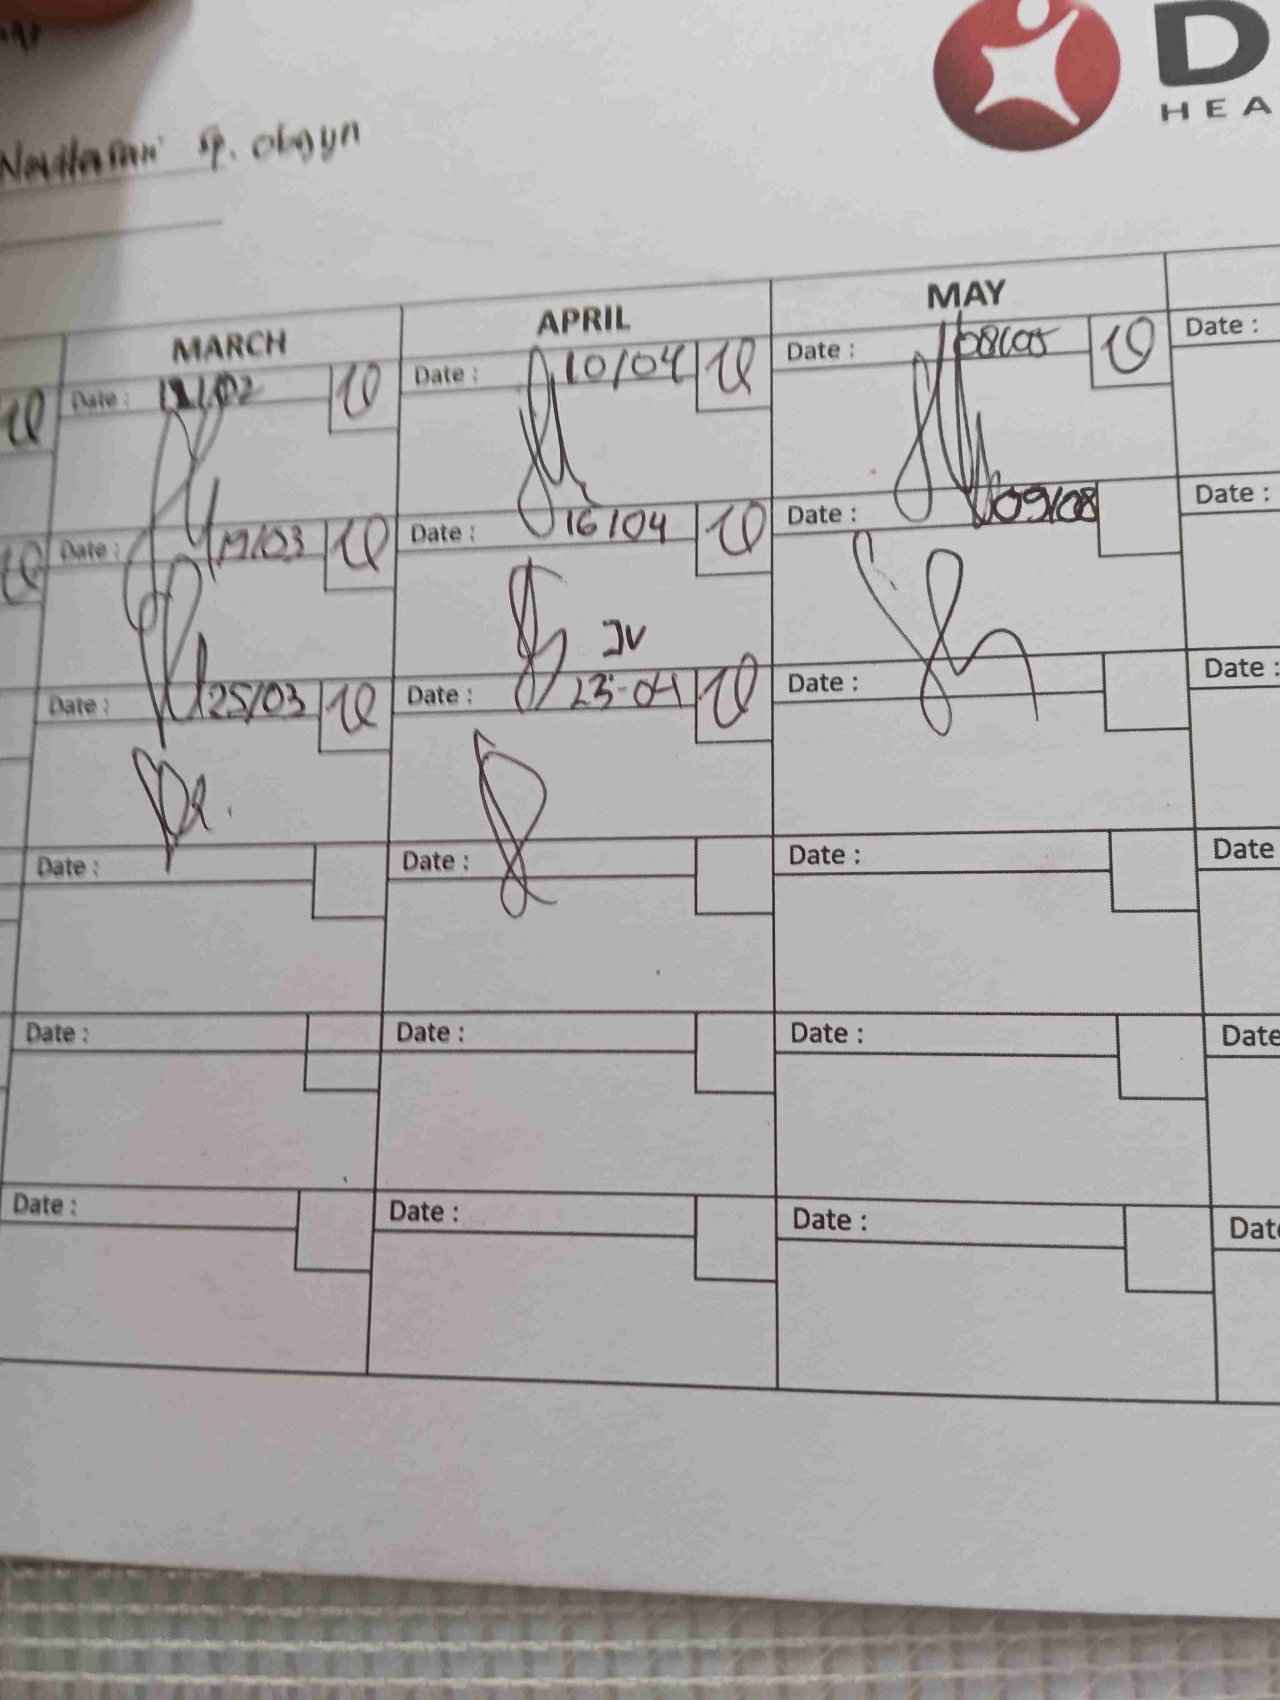 D
HEA
Sp. Obgyn
MARCH APRIL MAY
Date : Date : 10/04 Date : 08/05 Date :
Date : 19/03 Date : 16/04 Date : 09/08 Date :
Date : 25/03 Date : 23-04 Date : Date :
Date : Date : Date : Date
Date : Date : Date : Date
Date : Date : Date : Date